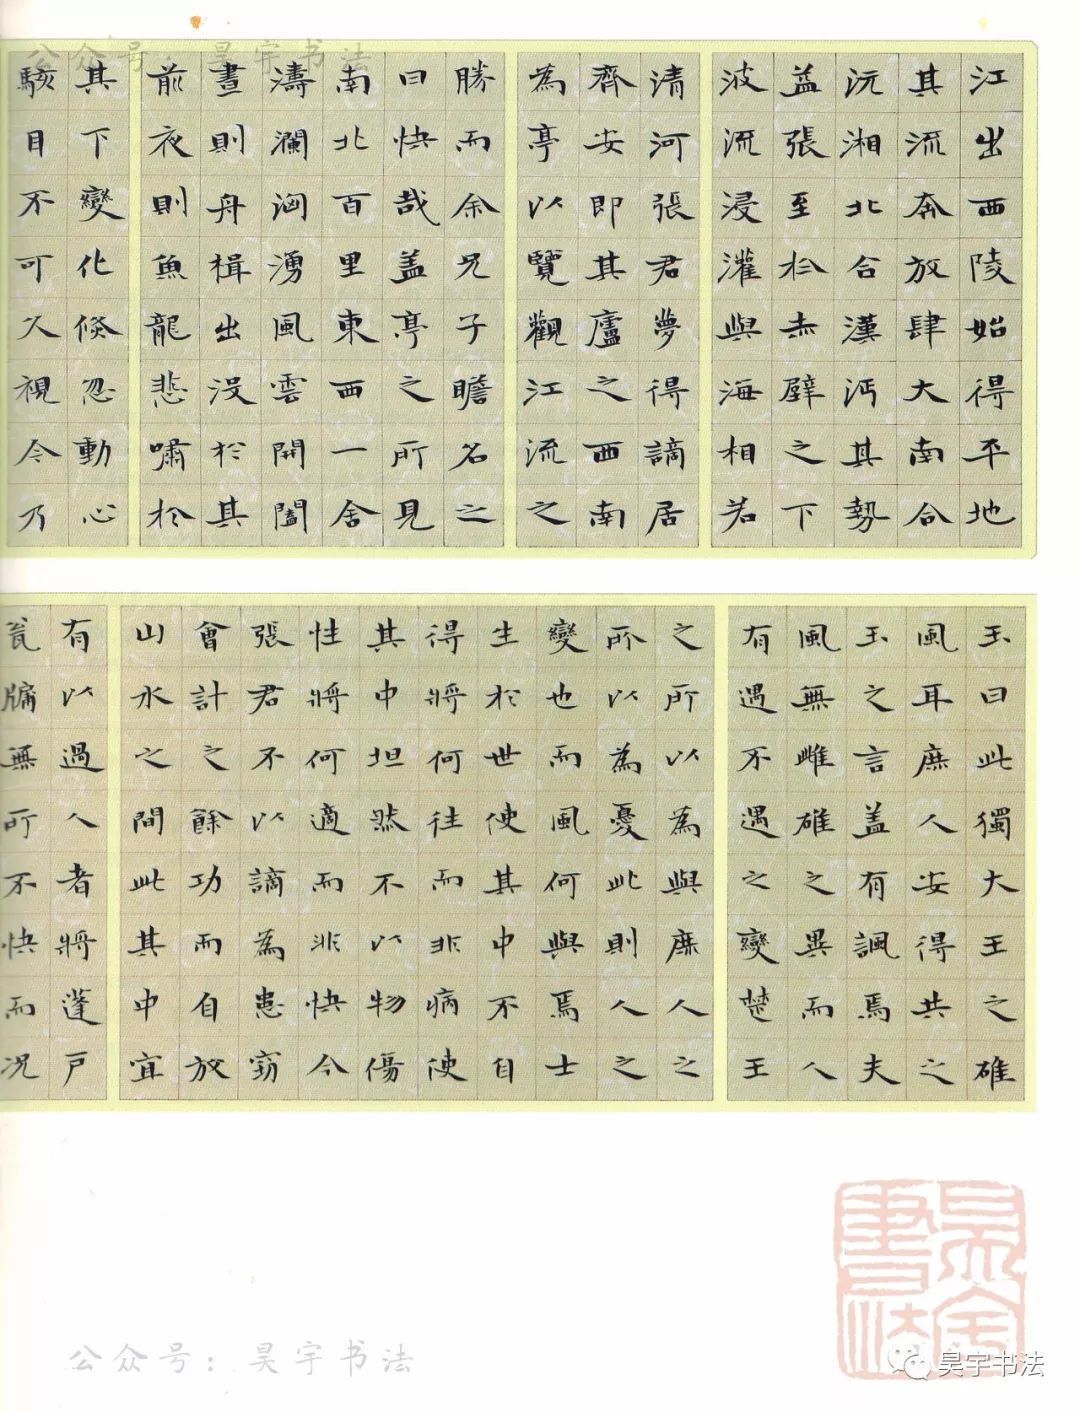 公众号：昊宇书法
江出西陵始得平地
其流奔放肆大南合
沅湘北合漢沔其勢
益張至於赤壁之下
波流浸灌與海相若
清河張君夢得謫居
齊安即其廬之西南
為亭以覽觀江流之
勝而余兄子瞻名之
曰快哉盖亭之所見
南北百里東西一舍
濤瀾洶湧風雲開闔
晝則舟楫出没於其
前夜則魚龍悲嘯於
其下變化倏忽動心
駭目不可久視今乃
玉曰此獨大王之雄
風耳庶人安得共之
玉之言盖有諷焉夫
風無雌雄之異而人
有遇不遇之變楚王
之所以為與庶人之
所以為憂此則人之
變也而風何與焉士
生於世使其中不自
得將何往而非病使
其中坦然不以物傷
性將何適而非快今
張君不以謫為患窃
會計之餘功而自放
山水之間此其中宜
有以過人者將蓬戶
瓮牖無所不快而况
昊宇書法
公众号：昊宇书法
昊宇书法